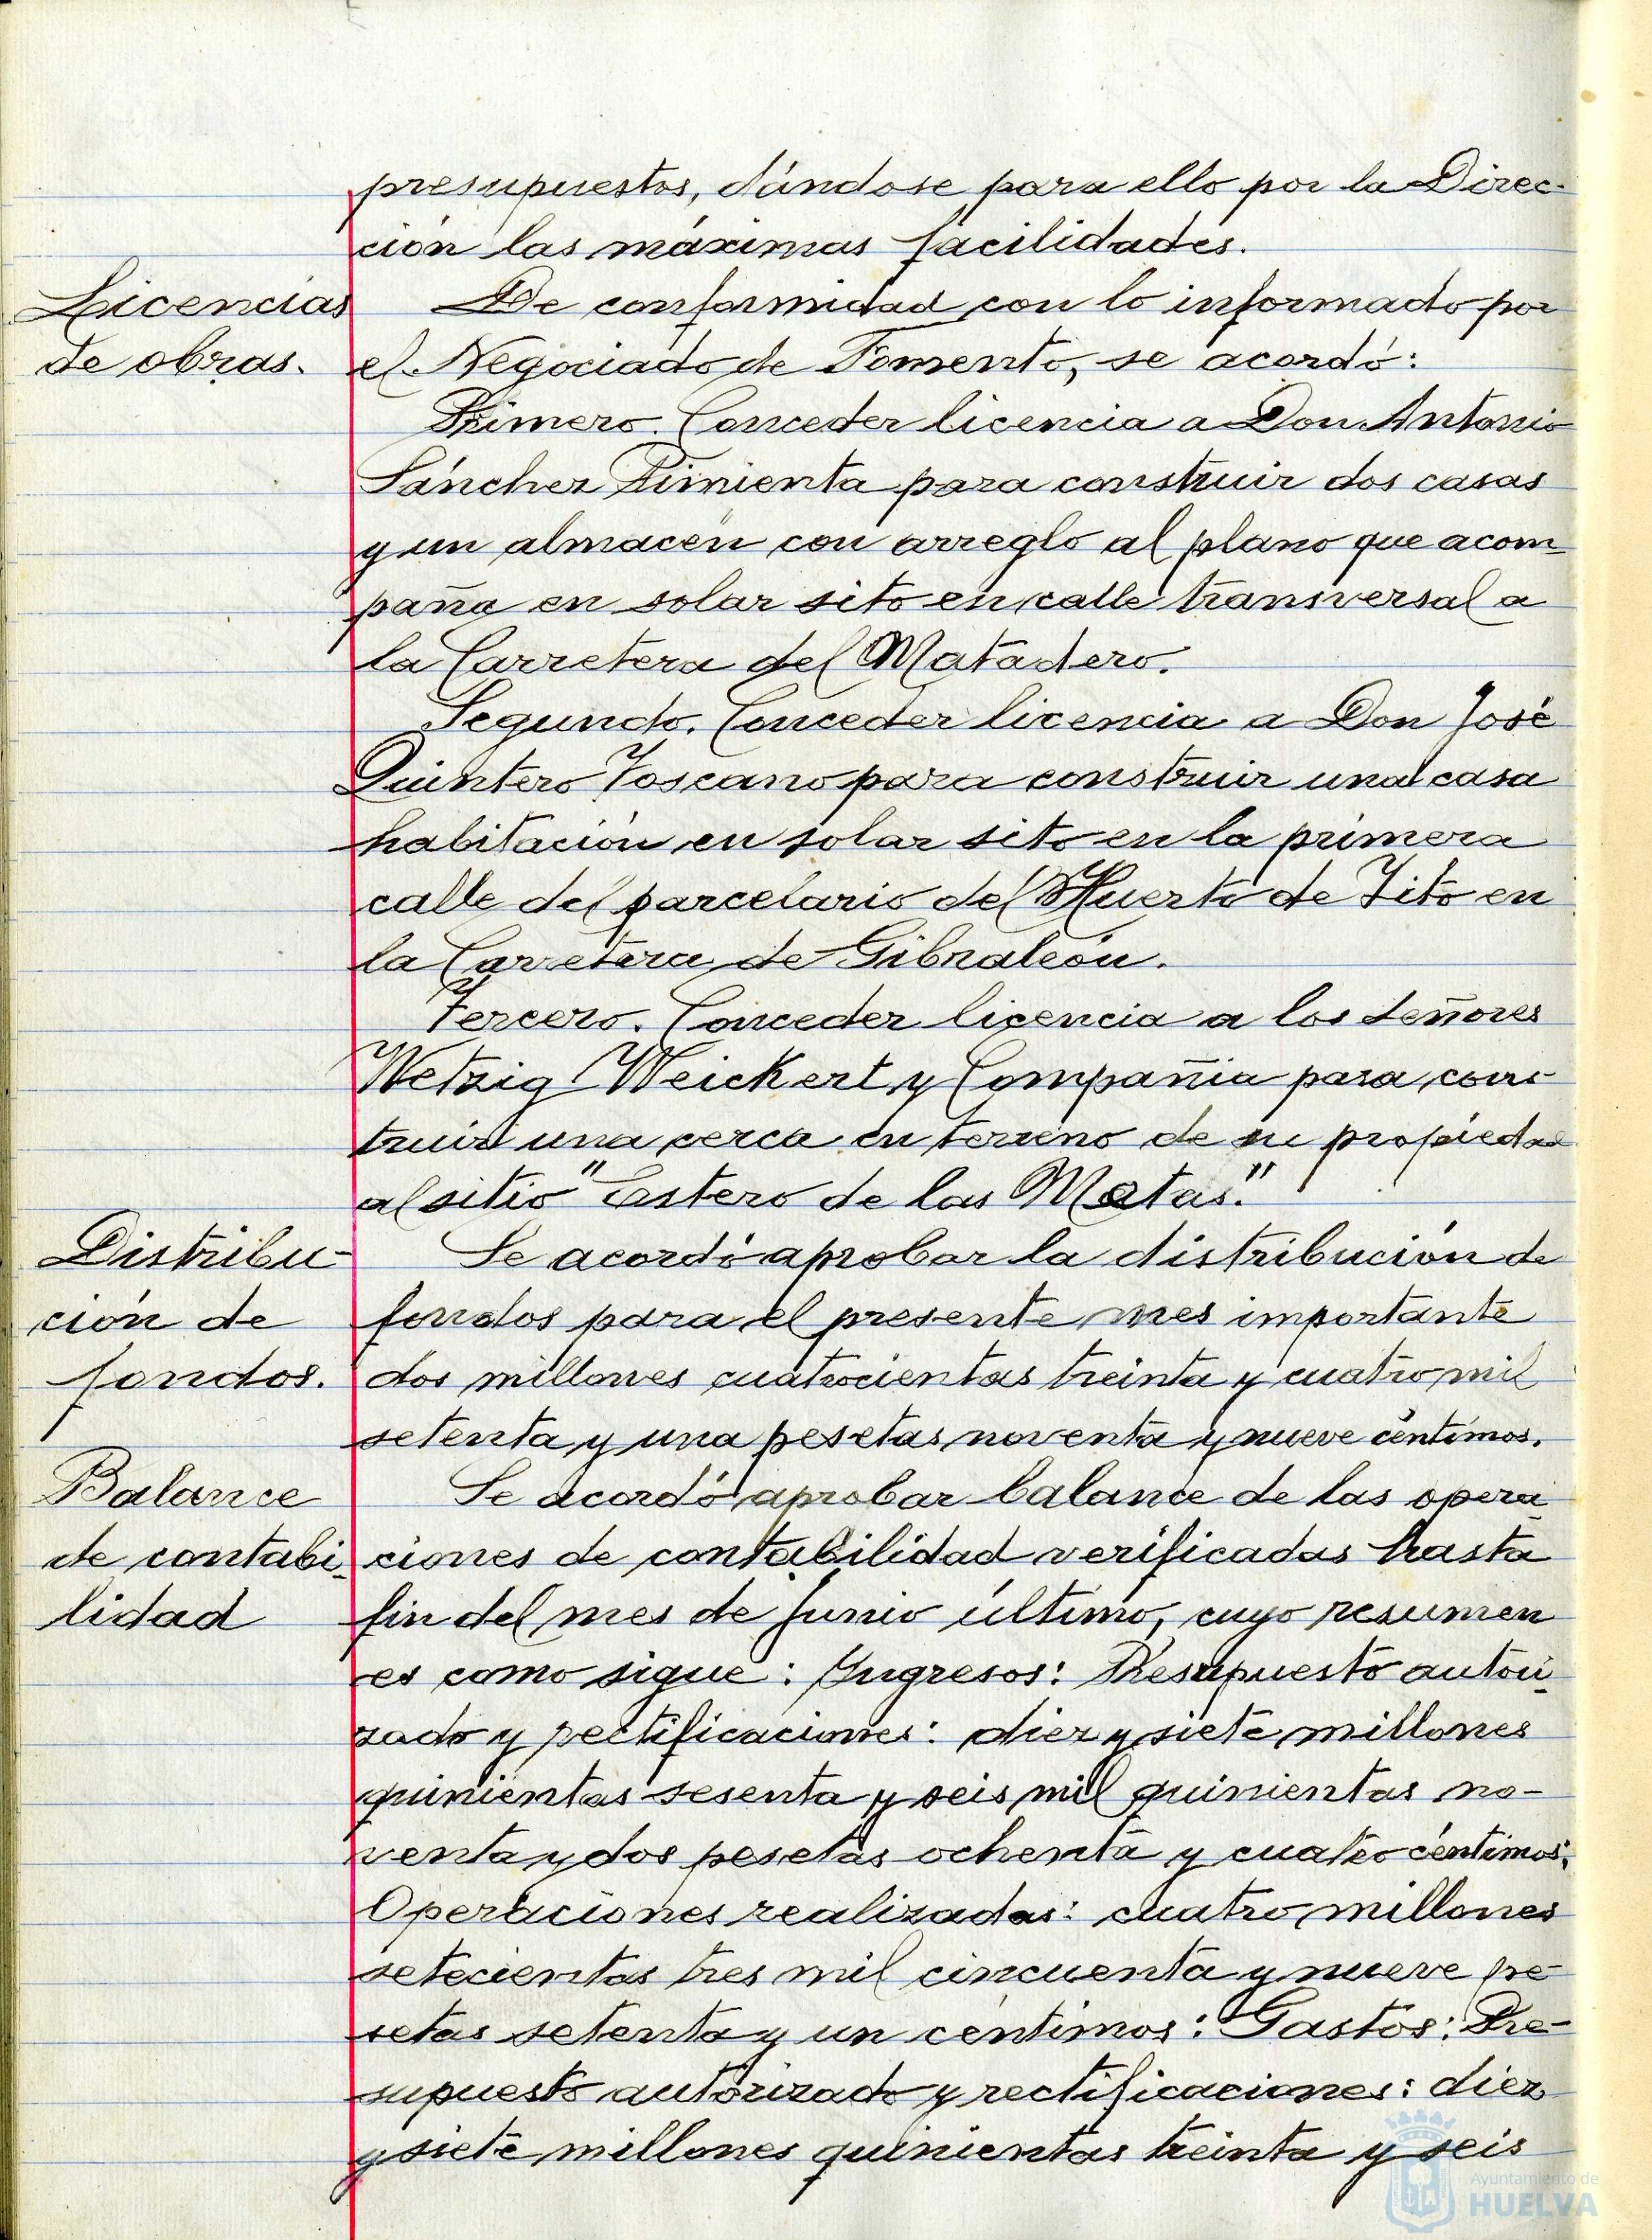 presupuestos, dándose para ello por la Direc-
ción las máximas facilidades.
Licencias
de obras.
De conformidad con lo informado por
el Negociado de Fomento, se acordó:
Primero. Conceder licencia a Don Antonio
Sánchez Pimienta para construir dos casas
y un almacén con arreglo al plano que acom-
paña en solar sito en calle transversal a
la Carretera del Matadero.
Segundo. Conceder licencia a Don José
Quintero Toscano para construir una casa
habitación en solar sito en la primera
calle del parcelario del Huerto de Tito en
la Carretera de Gibraleón.
Tercero. Conceder licencia a los señores
Wetzig Weickert y Compañia para cons-
truir una cerca en terreno de su propiedad
al sitio "Estero de las Matas".
Distribu-
ción de
fondos.
Se acordó aprobar la distribución de
fondos para el presente mes importante
dos millones cuatrocientas treinta y cuatro mil
setenta y una pesetas noventa y nueve céntimos.
Balance
de contabi-
lidad
Se acordó aprobar balance de las opera-
ciones de contabilidad verificadas hasta
fin del mes de Junio último, cuyo resumen
es como sigue: Ingresos: Presupuesto autori-
zado y rectificaciones: diez y siete millones
quinientas sesenta y seis mil quinientas no-
venta y dos pesetas ochenta y cuatro céntimos;
Operaciones realizadas: cuatro millones
setecientas tres mil cincuenta y nueve pe-
setas setenta y un céntimos: Gastos: Pre-
supuesto autorizado y rectificaciones: diez
y siete millones quinientas treinta y seis
Ayuntamiento de
HUELVA